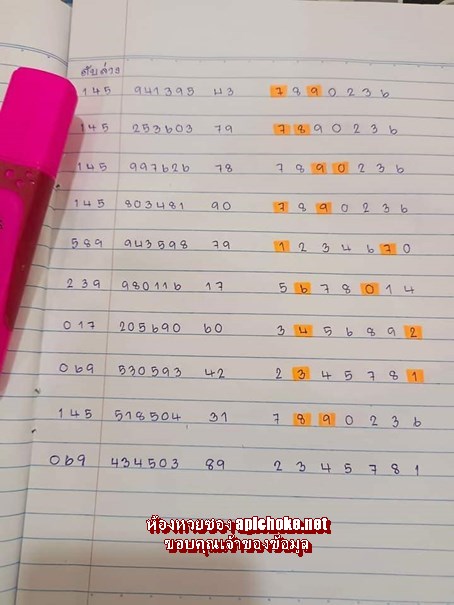 ดับล่าง
145 941395 43 7890236
145 253603 79 7890236
145 997626 78 7890236
145 803481 90 7890236
589 943598 79 1234670
239 980116 17 5678014
017 205690 60 3456892
069 530593 42 2345781
145 518504 31 7890236
069 434503 89 2345781
ห้องหวยซอง apichoke.net
ขอบคุณเจ้าของข้อมูล